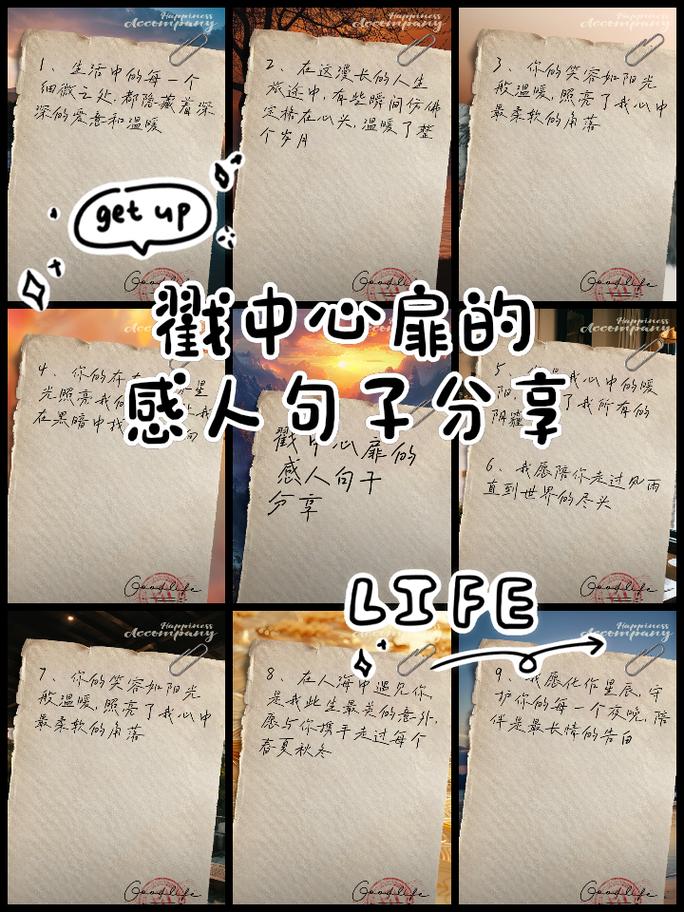 Happiness
Accompany
1、生活中的每一个
细微之处,都隐藏着深
深的爱意和温暖
Goodlife
Happiness
Accompany
2、在这漫长的人生
旅途中,有些瞬间仿佛
定格在心头,温暖了整
个岁月
Goodlife
Happiness
Accompany
3、你的笑容如阳光
般温暖,照亮了我心中
最柔软的角落
Goodlife
get up
戳中心扉的
感人句子分享
Happiness
Accompany
4、你的存在
光照亮我的
在黑暗中找
Goodlife
戳中心扉的
感人句子
分享
Happiness
Accompany
5、
我心中的暖
阳,
了我所有的
阴霾
6、我愿陪你走过风雨
直到世界的尽头
Goodlife
LIFE
Happiness
Accompany
7、你的笑容如阳光
般温暖,照亮了我心中
最柔软的角落
Goodlife
Happiness
Accompany
8、在人海中遇见你,
是我此生最美的意外,
愿与你携手走过每个
春夏秋冬
Goodlife
Happiness
Accompany
9、我愿化作星辰,守
护你的每一个夜晚,陪
伴是最长情的告白
Goodlife